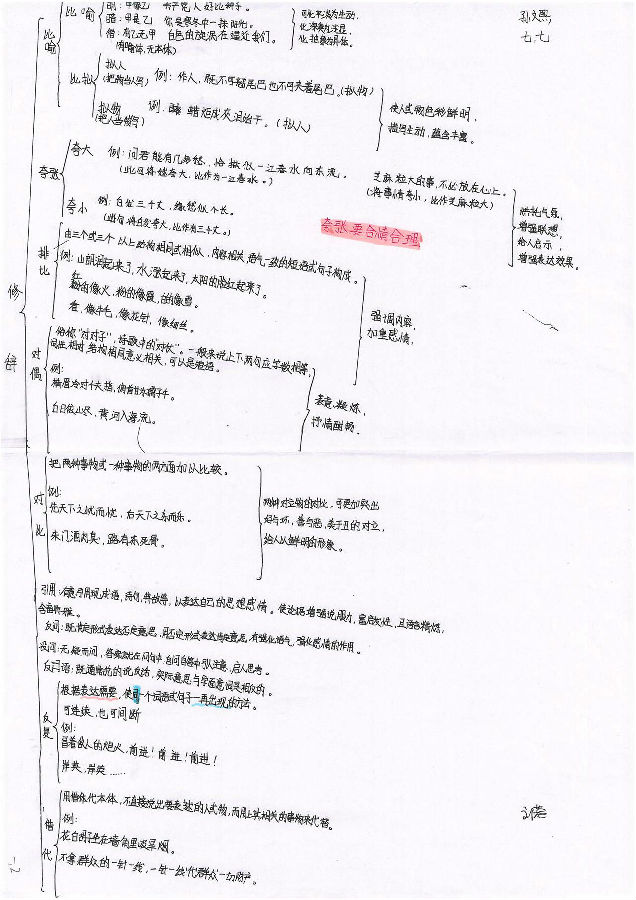 孙文熙
七、七
修辞
比喻
比喻
暗：甲是乙
借：有乙无甲 白色的旋涡在逼近我们。
(有喻体，无本体)
可化平淡为生动，
化深奥为浅显，
化抽象为具体。
比拟
拟人
(把物当人写)
例：作人，既不可翘尾巴也不可夹着尾巴。(拟物)
拟物
(把人当物写)
例：蜡炬成灰泪始干。(拟人)
使人或物色彩鲜明，
描写生动，蕴含丰富。
夸张
夸大 例：问君能有几多愁，恰似一江春水向东流。
(此句将愁夸大，比作为一江春水。)
例：白发三千丈，缘愁似个长。
(此句将白发夸大，比作为三千丈。)
夸小
芝麻粒大的事，不必放在心上。
(将事情夸小，比作芝麻粒大)
烘托气氛，
增强联想，
给人启示，
增强表达效果。
夸张要合情合理
排比
由三个或三个以上结构相同或相似，内容相关，语气一致的短语或句子构成。
例：山朗润起来了，水涨起来了，太阳的脸红起来了。
红的像火，粉的像霞，白的像雪。
看，像牛毛，像花针，像细丝。
强调内容，
加重感情，
对偶
俗称“对对子”，诗歌中的“对仗”。一般来说上下两句应字数相等，
词性相对，结构相同意义相关，可以是短语。
例：
横眉冷对千夫指，俯首甘为孺子牛。
白日依山尽，黄河入海流。
表意凝炼，
抒情酣畅
对比
把两种事物或一种事物的两方面加以比较。
例：
先天下之忧而忧，后天下之乐而乐。
朱门酒肉臭，路有冻死骨。
两种对立物的对比，可更加突出
好与坏，善与恶，美与丑的对立，
给人以鲜明的形象。
引用：有意引用现成语，诗句，典故等，以表达自己的思想感情。使论据增强说服力，富启发性，且语言精炼，
含蓄典雅。
反问：既肯定形式表达否定意思，用否定形式表达肯定意思，有强化语气，强化感情的作用。
设问：无疑而问，答案就在问句中，自问自答中引人注意，启人思考。
反语：既通常说的说反话，实际意思与字面意思是相反的。
反复
根据表达需要，使同一个词语或句子一再出现的方法。
可连续，也可间断
例：
冒着敌人的炮火，前进！前进！前进！
盼望，盼望……
借代
用借体代本体，不直接说出想要表达的人或物，而用与其相关的事物来代替。
例：
花白胡子坐在墙角里吸旱烟。
不拿群众的一针一线，一针一线“代”群众一切财产。